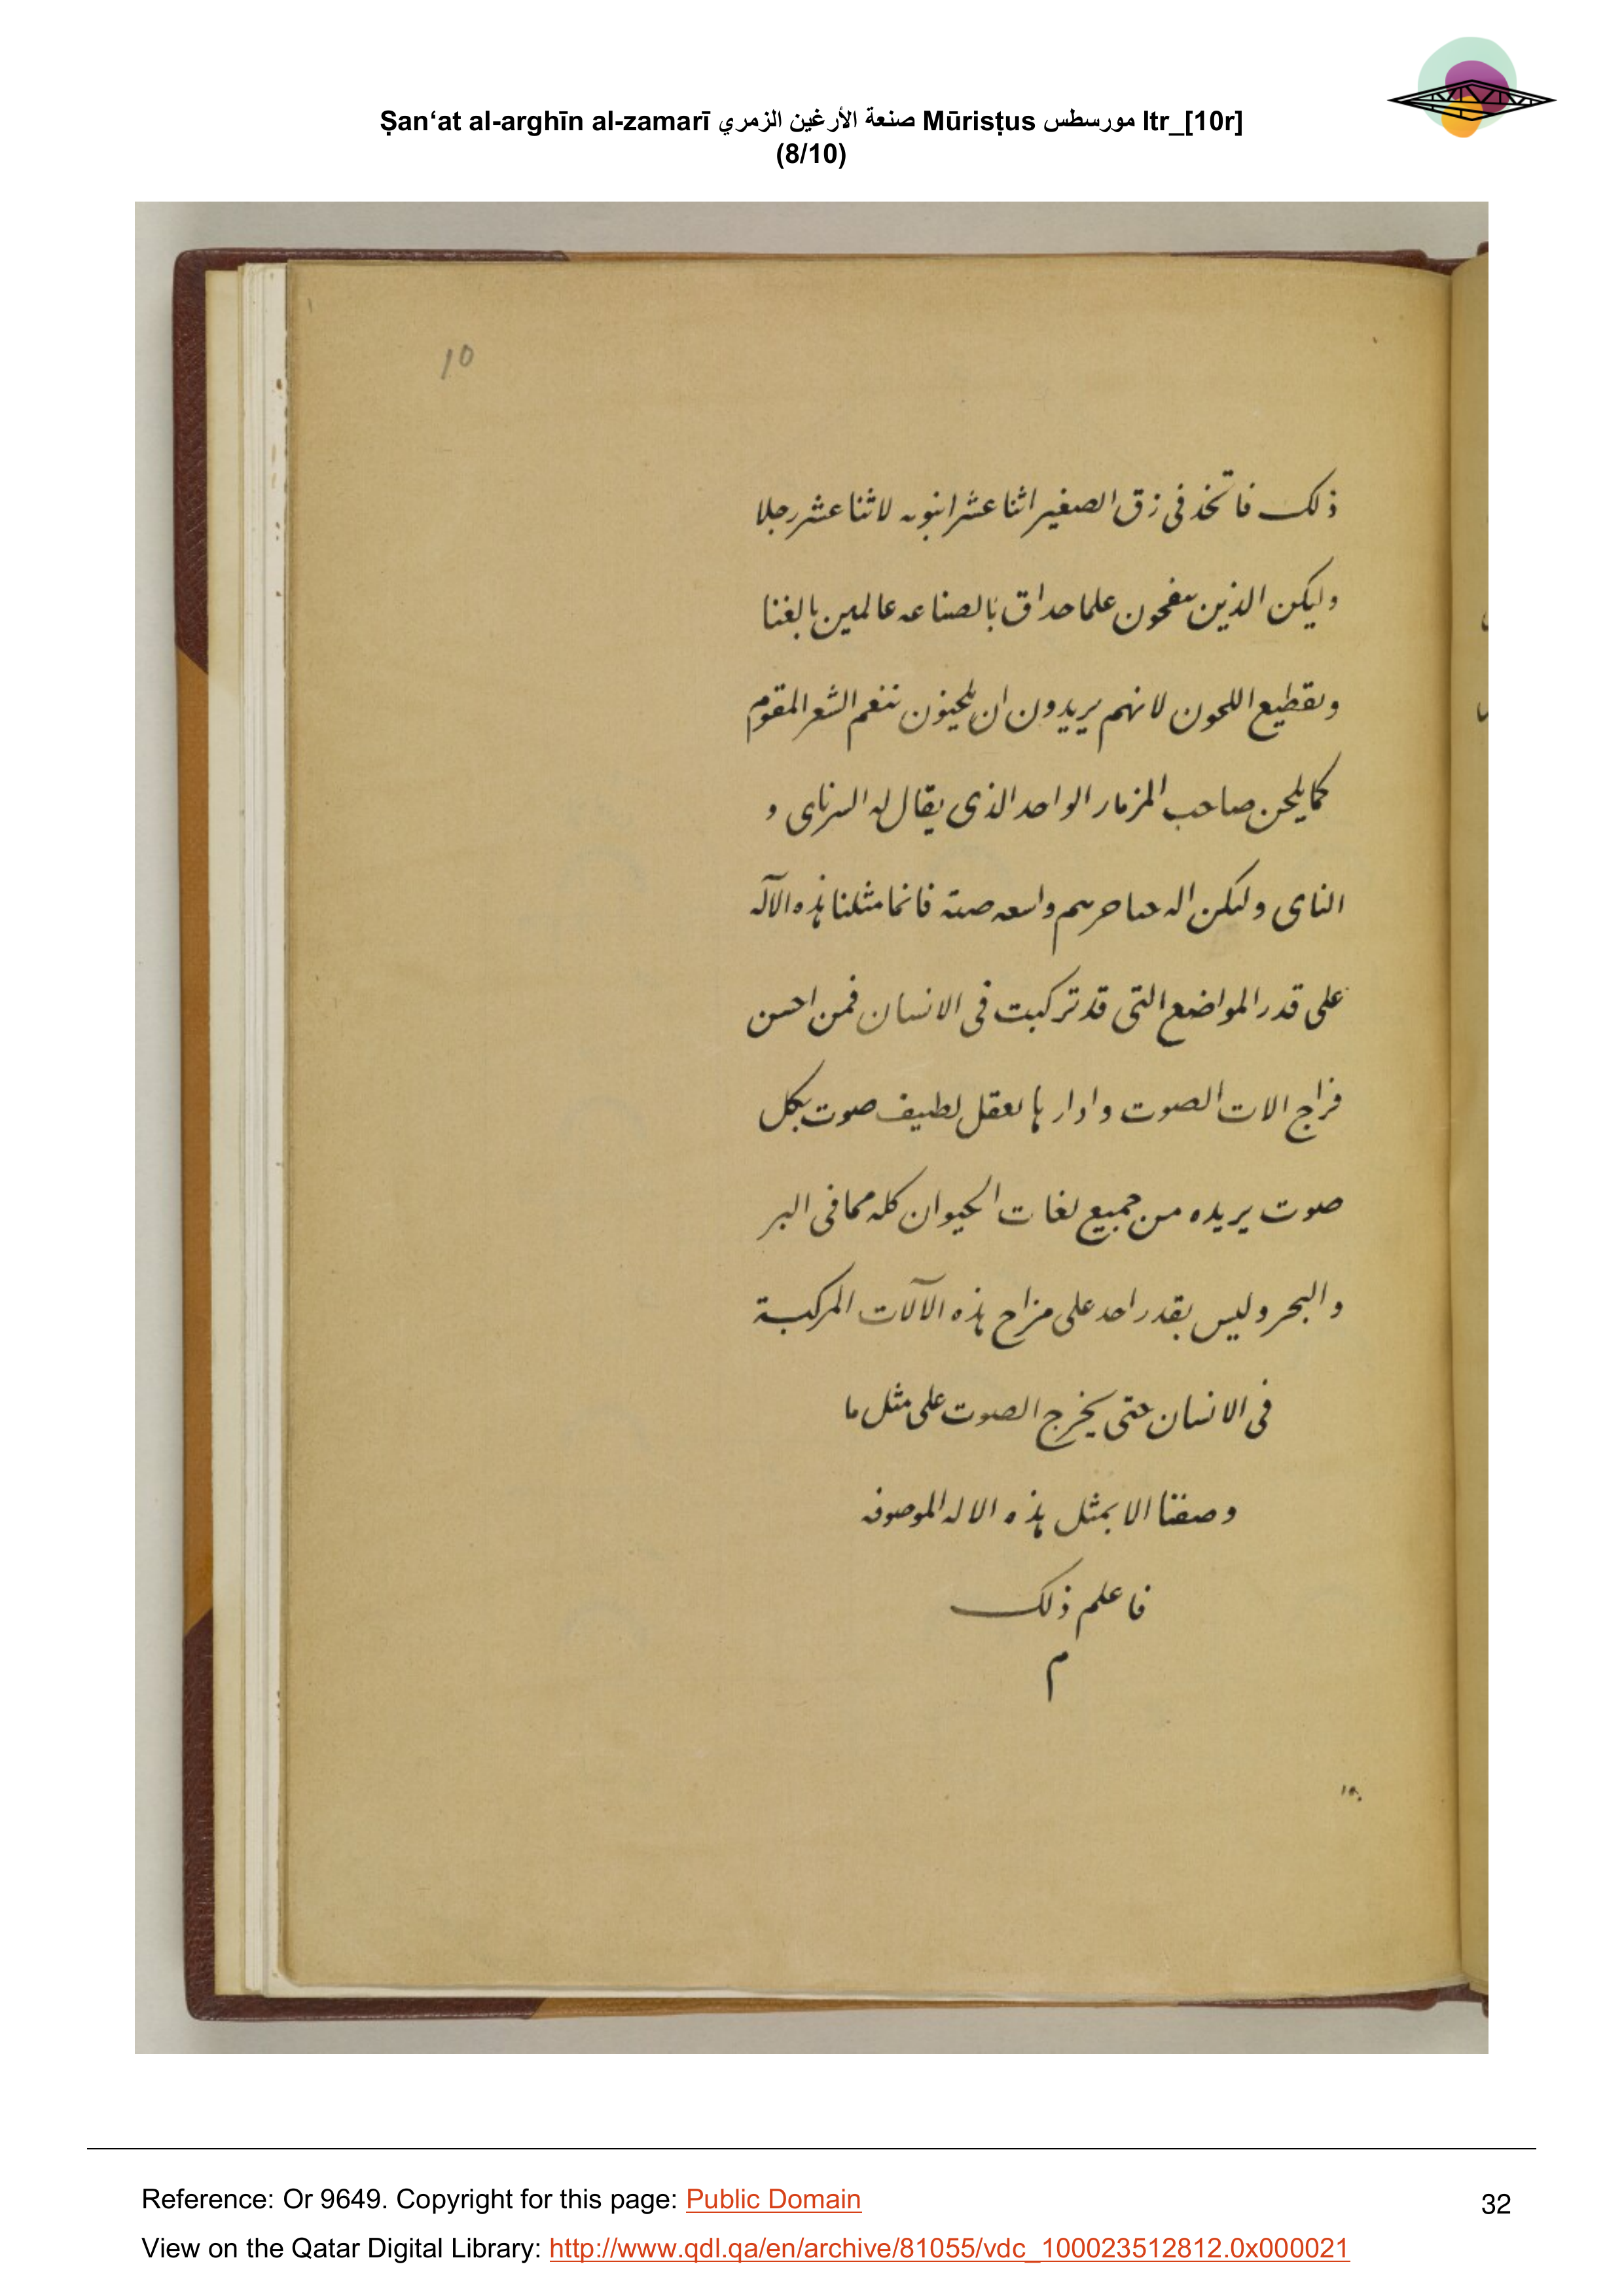 Ṣan‘at al-arghīn al-zamarī صنعة الأرغين الزمري Mūrisṭus مورسطس ltr_[10r]
(8/10)
10
ذلك فاتخذ فى زق الصغير اثنا عشر انبوبه لاثنا عشر رجلا
وليكن الذين ينفخون علما حداق بالصناعه عالمين بالغنا
وتقطيع اللحون لانهم يريدون ان يلحنون بنغم الشعر المقوم
كما يلحن صاحب المزمار الواحد الذى يقال له السرناى و
الناى وليكن واسعه فانما مثلنا هذه الآله
على قدر المواضع التى قد تركبت فى الانسان فمن احسن
مزاج الات الصوت وادارها بعقل لطيف صوت بكل
صوت يريده من جميع لغات الحيوان كله مما فى البر
والبحر وليس بقدر احد على مزاج هذه الآلات المركبة
فى الانسان حتى يخرج الصوت على مثل ما
وصفنا الا بمثل هذه الاله الموصوفه
فاعلم ذلك
م
Reference: Or 9649. Copyright for this page: Public Domain
32
View on the Qatar Digital Library: http://www.qdl.qa/en/archive/81055/vdc_100023512812.0x000021